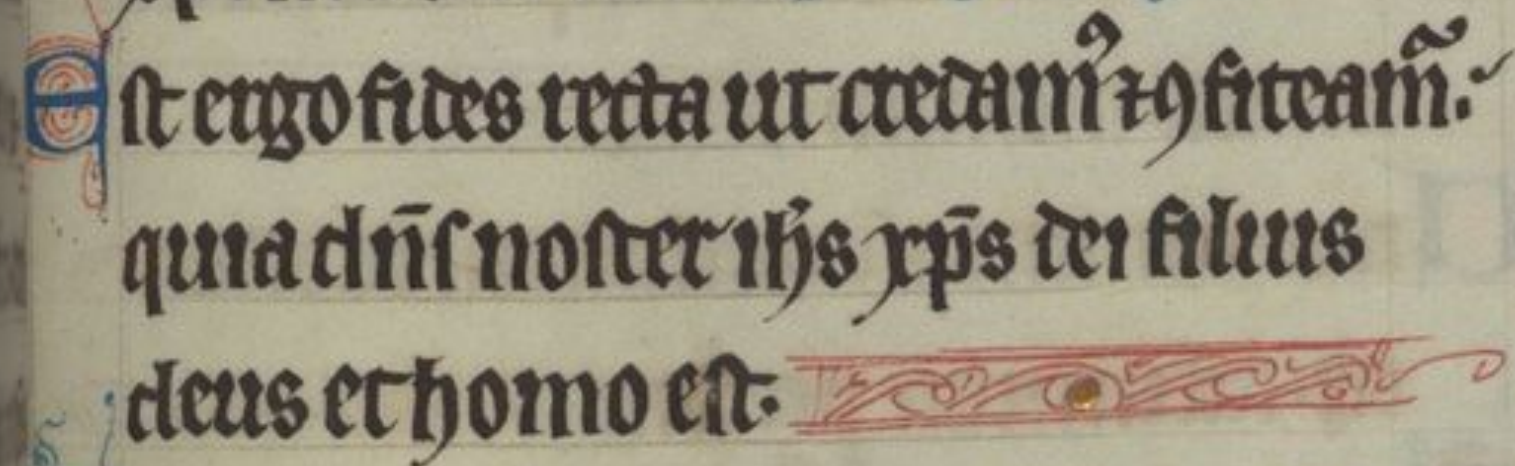 Est ergo fides recta ut credamꝰ ⁊ ꝯfiteam᷒:
quia dn̄s noster ih̓s xp̄s dei filius
deus et homo est.